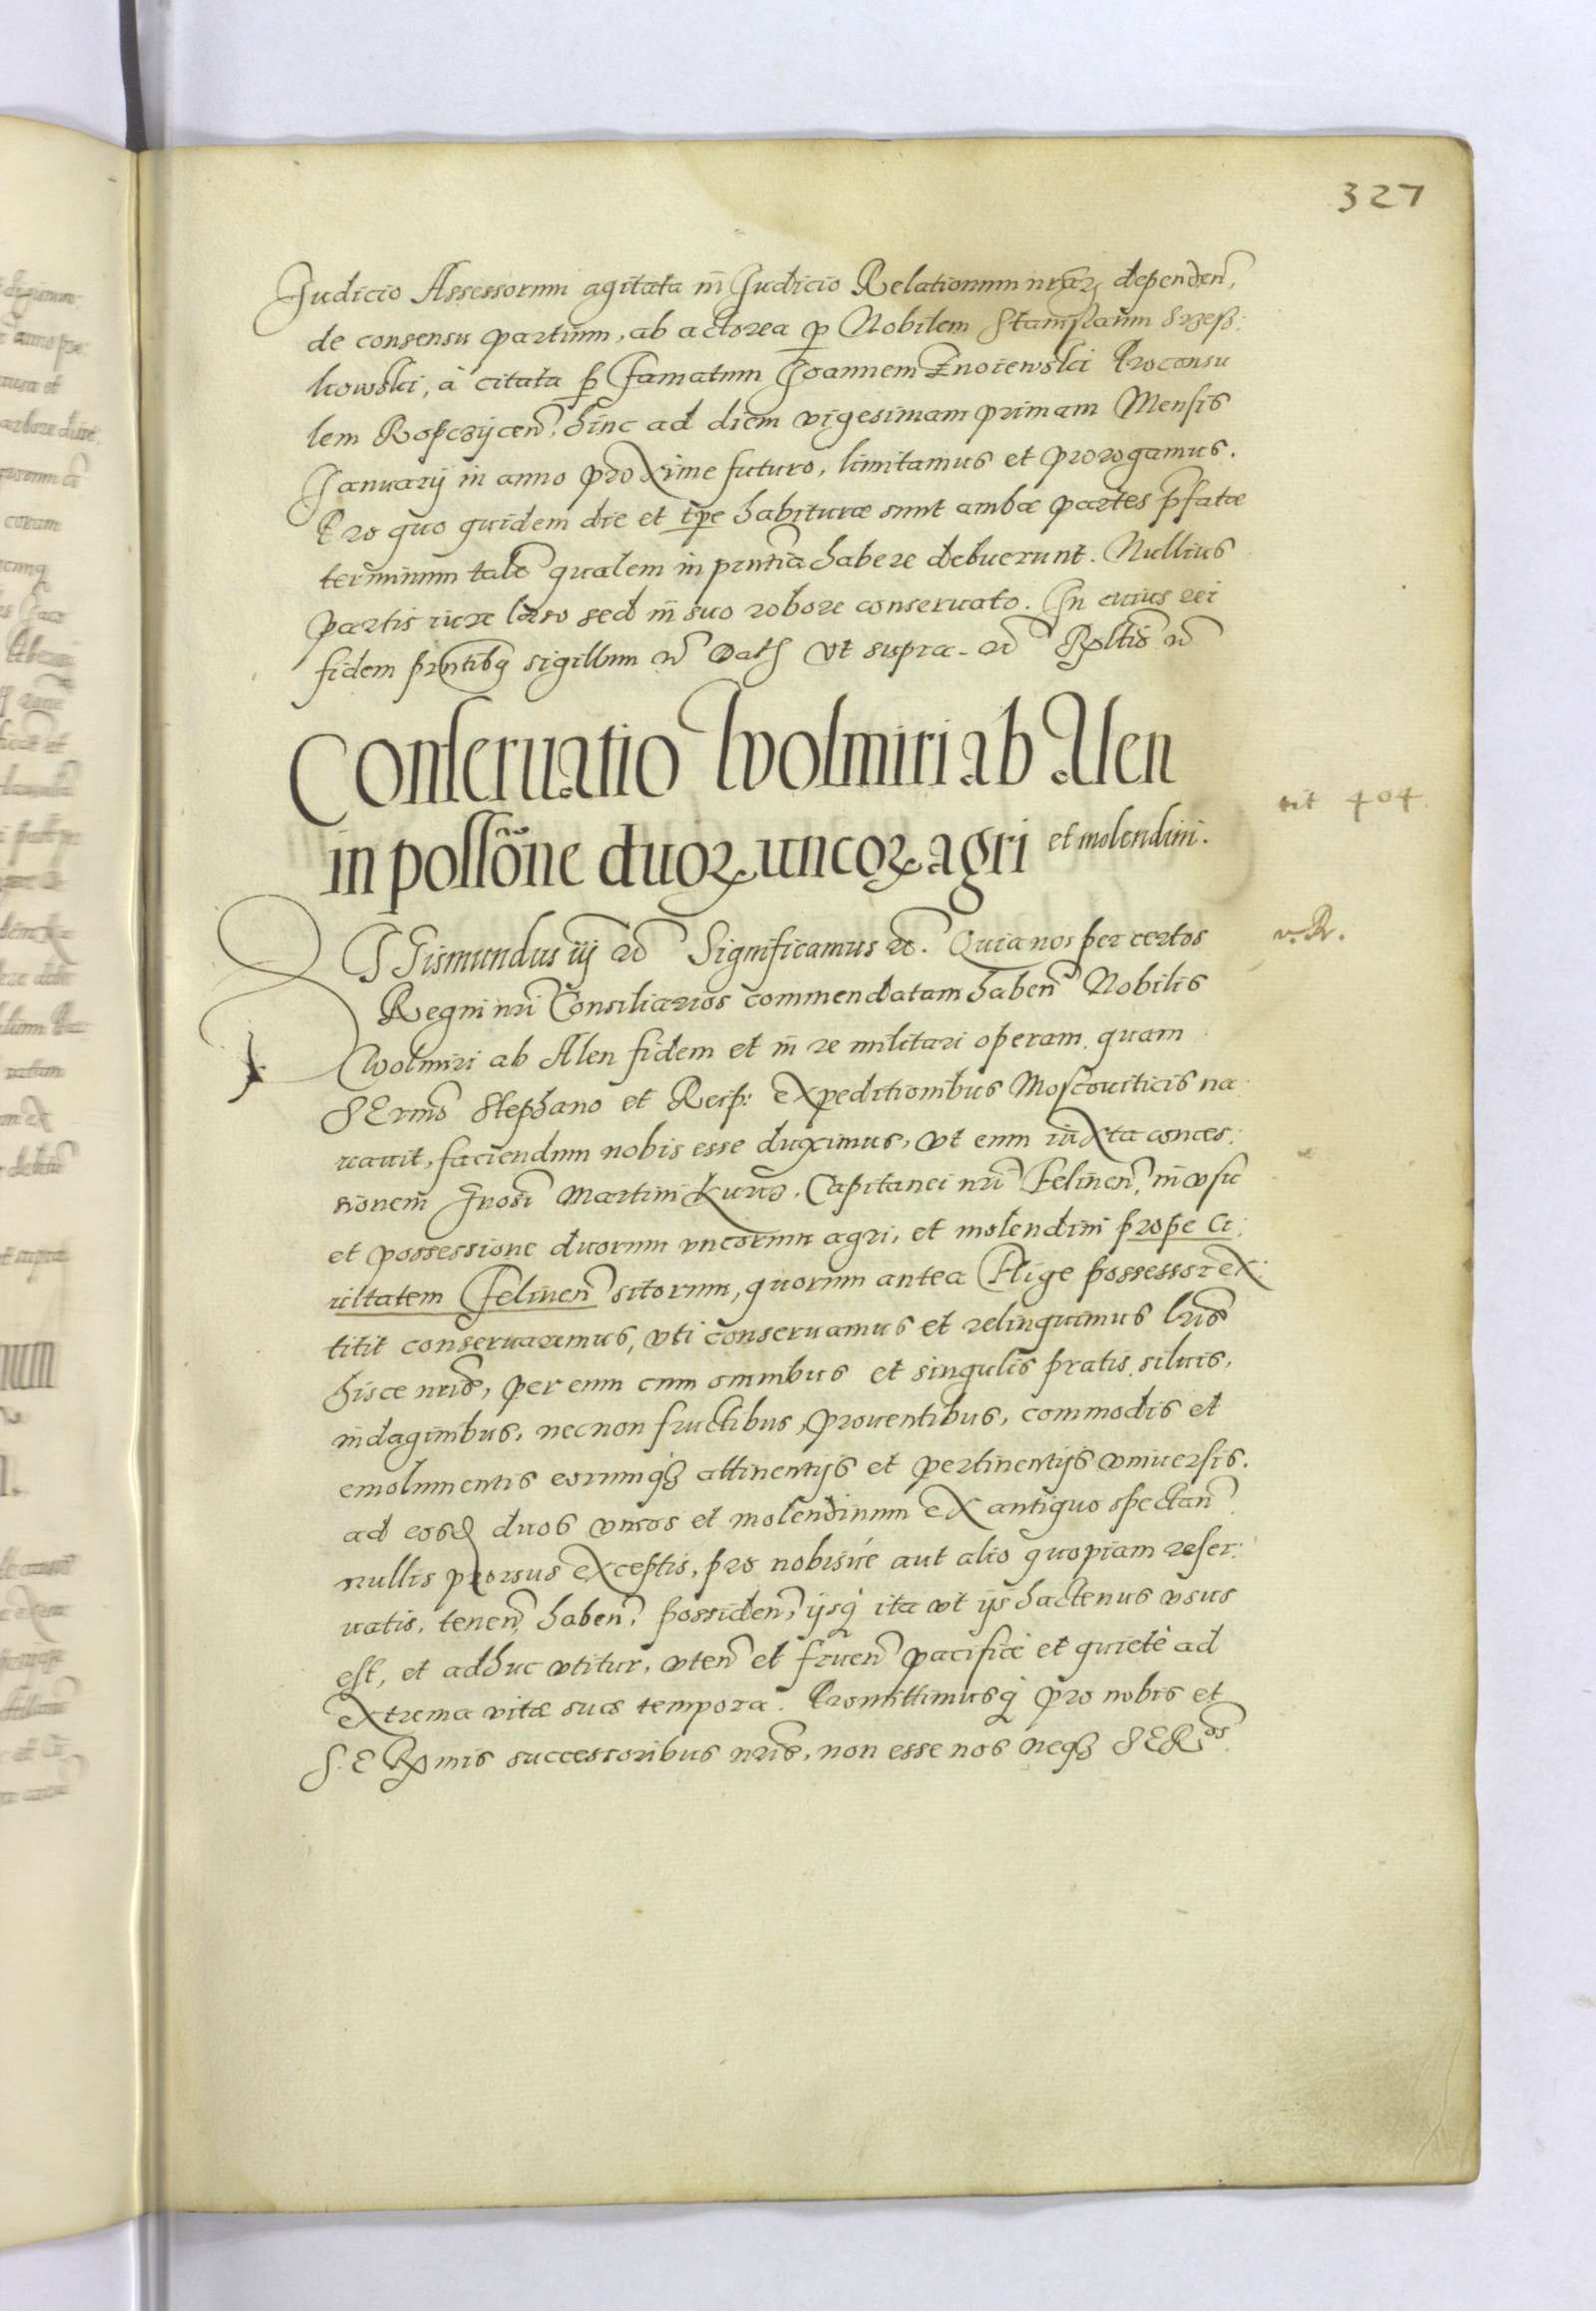 327
Iudicio Assessorum agitata in Iudicio Relationum nrãrꝝ dependeñ,
de consensu partium, ab actorea ꝑ Nobilem Stanislaum Srzeß:
kowski, à citata ꝑ Famatum Joannem Znoiewski Proconsu
lem Ropczyceñ, hinc ad diem vigesimam primam Mensis
Januarij in anno proxime futuro, limitamus et prorogamus.
Pro quo quidem die et tp̃e habituræ sunt ambæ partes p̃fatæ
terminum talẽ qualem in pñntia habere debuerunt. Nullius
partis iure læso sed in suo robore conseruato. In cuius rei
fidem p̃ntibꝫ sigillum ꝛc̃ Datꝭ vt supra ꝛc̃ Rꝑltio ꝛc̃
Conseruatio Wolmiri ab Alen
in possõne duoꝝ uncoꝝ agri et molendini.
tit 404
SIgismundus iij ꝛc̃ Significamus ꝛc̃. Quia nos per certos
v. R.
Regni nri Consiliarios commendatam habeñ Nobilis
Wolmiri ab Alen fidem et in re militari operam, quam
SErmõ Stephano et Reip: expeditionibus Moscouiticis na
uauit, faciendum nobis esse duximus, vt eum iuxta conces:
sionem Gnosi Martini Kurtz, Capitanei nri Felineñ, in vsu
et possessione duorum vncorum agri, et molendini prope Ci:
uitatem Felineñ sitorum, quorum antea Plige possessor ex:
titit conseruaremus, vti conseruamus et relinquimus lris̃
hisce nris̃, per eum cum omnibus et singulis pratis, siluis,
indaginibus, necnon fructibus, prouentibus, commodis et
emolumentis eorumqꝫ attinentijs et pertinentijs vniuersis.
ad eosꝺ duos vncos et molendinum ex antiquo spectañ
nullis prorsus exceptis, pro nobisué aut alio quopiam reser:
uatis, teneñ, habeñ, possideñ, ijsq́ ita vt ijs hactenus vsus
est, et adhuc vtitur, vteñ et frueñ pacificè et quietè ad
extrema vitæ suæ tempora. Promittimusq́ pro nobis et
S. E Rꝑmis successoribus nris̃, non esse nos neqꝫ SERos